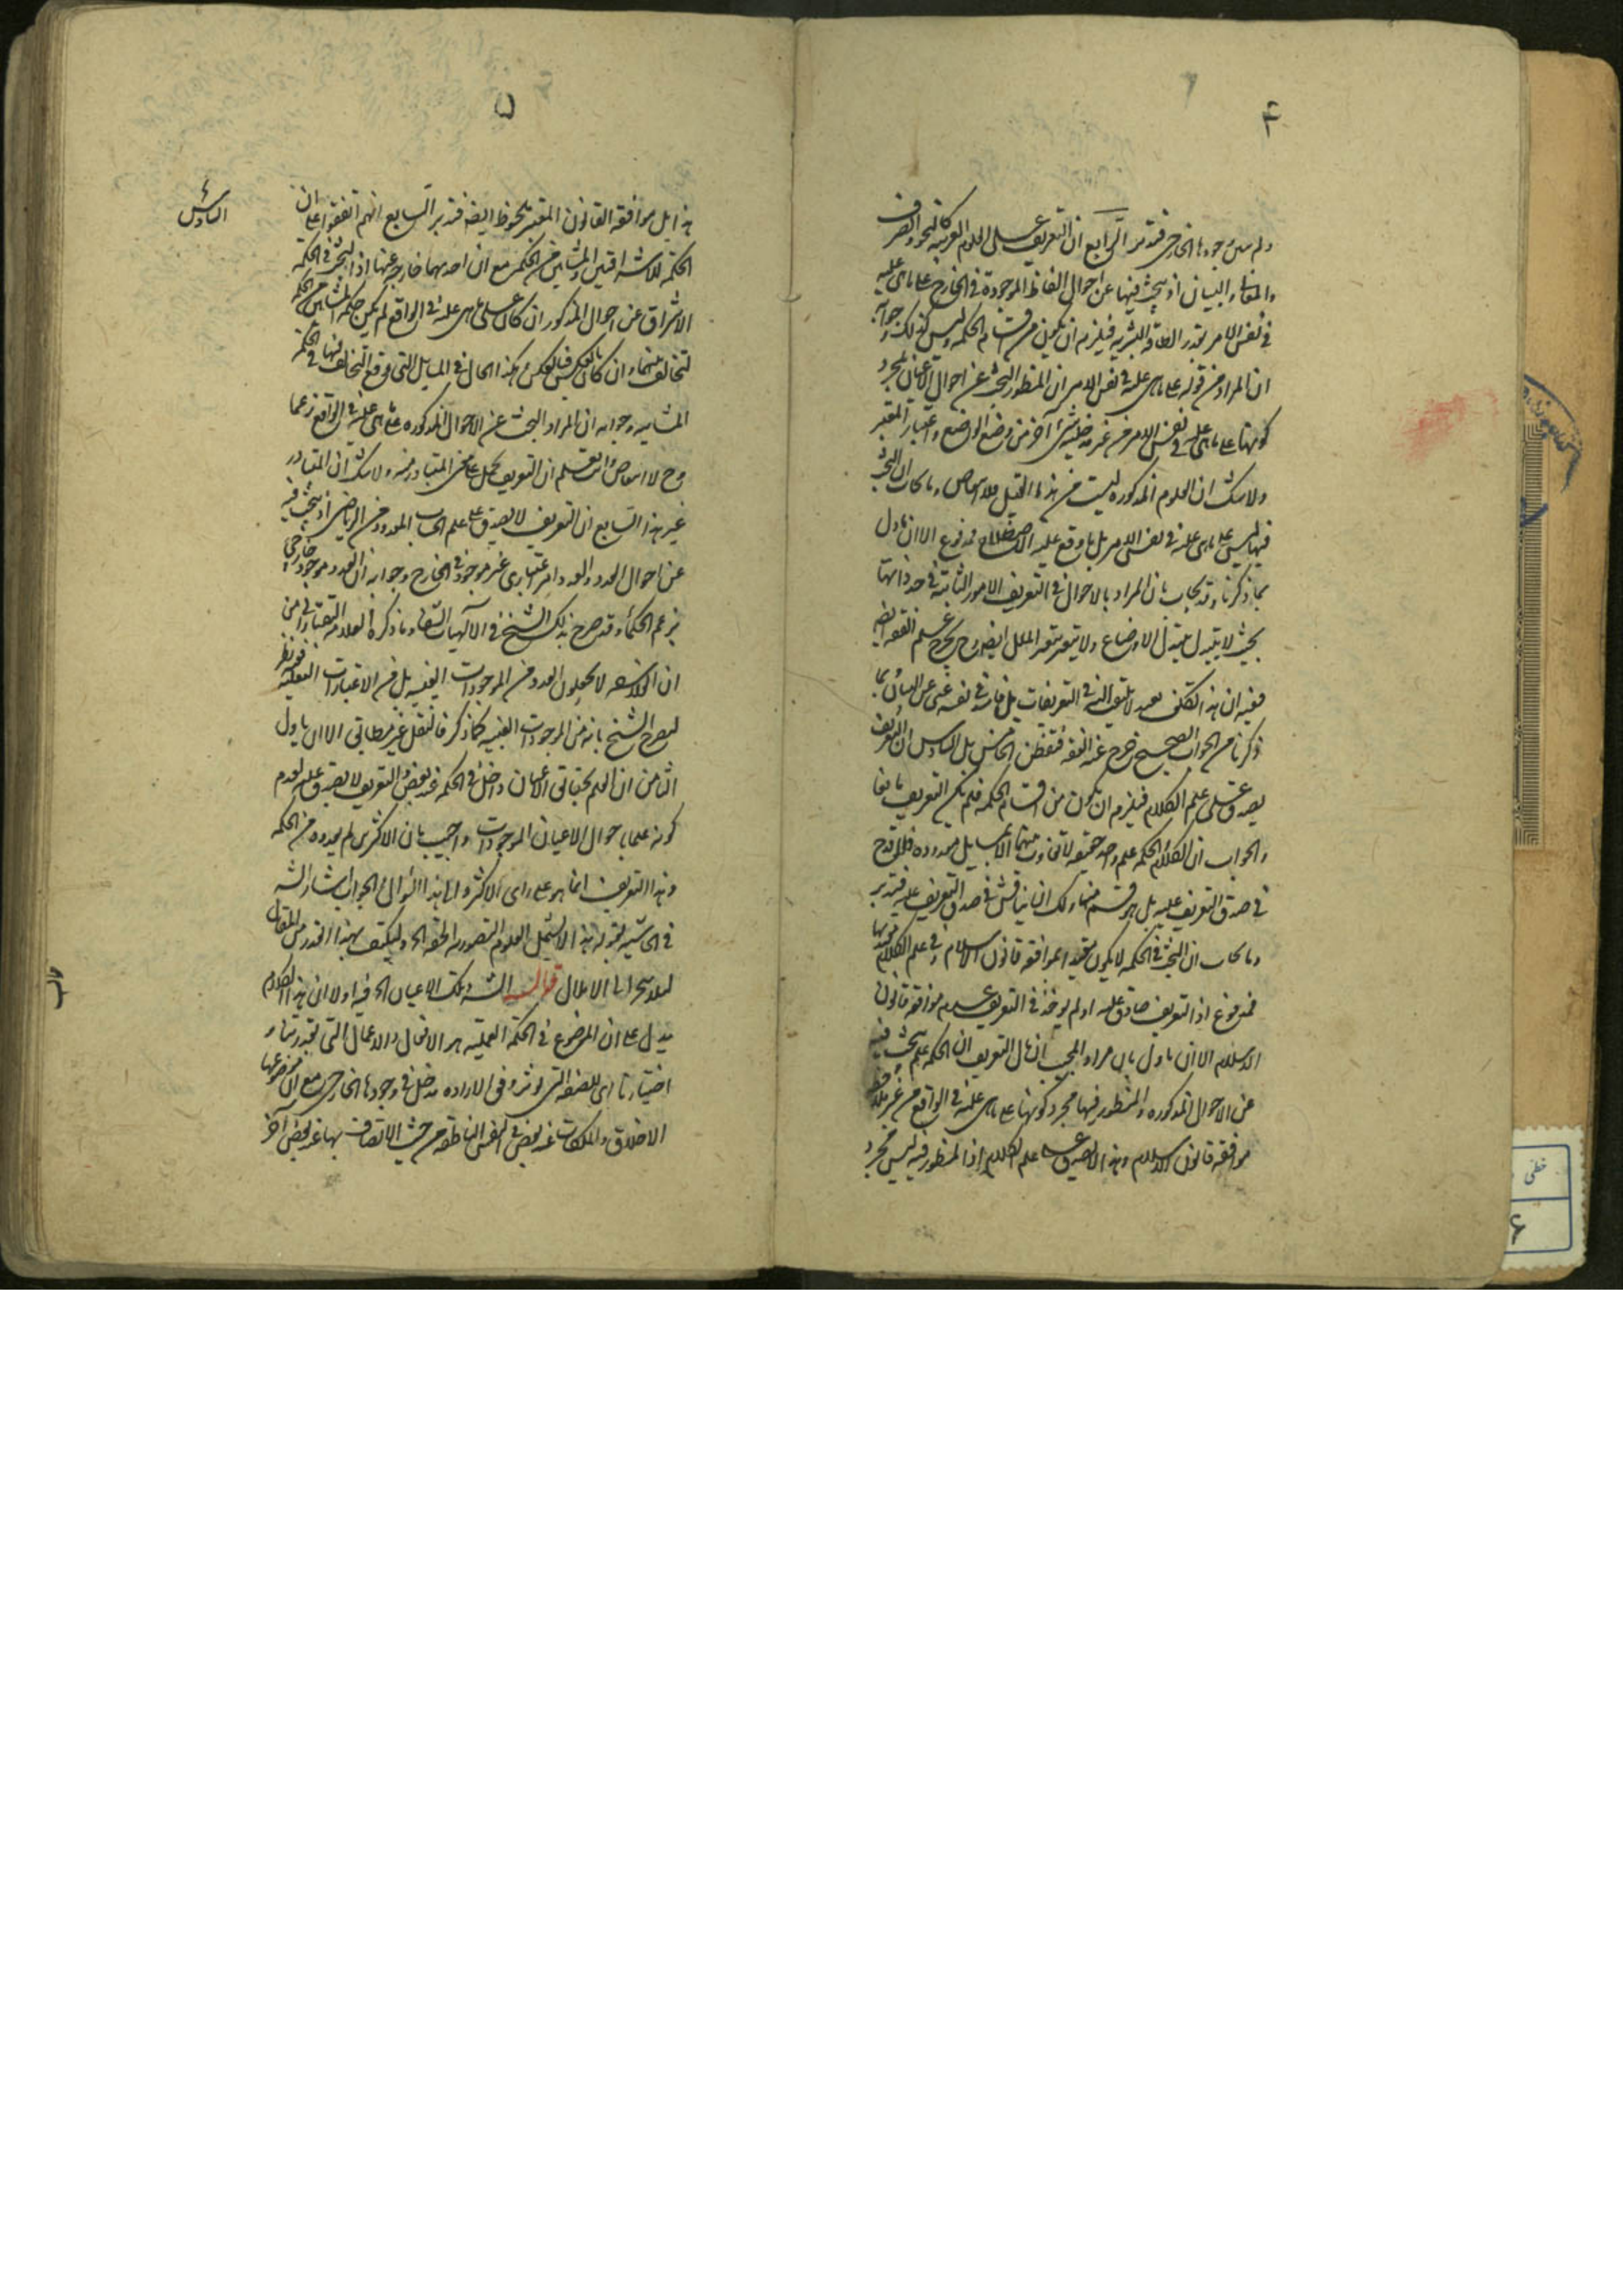 ۴
فتدبر الرابع ان التعريف يصدق على العلوم العربية كالنحو والصرف
والمعانى والبيان اذ يبحث فيها عن احوال الفاظ الموجودة فى الخارج على ما هى عليه
فى نفس الامر بقدر الطاقة البشرية فيلزم ان يكون من اقسام الحكمة وليس كذلك وجوابه
ان المراد من قوله على ما هى عليه فى نفس الامر ان المنظور البحث عن احوال الاعيان لمجرد
كونها على ما هى عليه فى نفس الامر من غير مدخلية شئ آخر من وضع الواضع واعتبار المعتبر
ولا شك ان العلوم المذكورة ليست من هذا القبيل فلا
فيها ليس على ما هى عليه فى نفس الامر بل ما وقع عليه الاصطلاح مدفوع الا ان ياول
بما ذكرنا وقد يجاب بان المراد بالاحوال فى التعريف الامور الثابتة فى حد ذاتها
بحيث لا يتبدل بتبدل الاوضاع ولا يتغير بتغير الملل ايضا وح يخرج علم الفقه ايضا
ففيه ان هذا تكلف بعيد لا يلتفت اليه فى التعريفات
ذكرنا من الجواب الصحيح خرج عنه الفقه فتفطن الخامس بل السادس ان التعريف
يصدق على علم الكلام فيلزم ان يكون من اقسام الحكمة فلم يكن التعريف مانعا
والجواب ان الكلام والحكمة علم واحد حقيقة لا تفاوت بينهما الا بمسايل معدودة فلا قدح
فى صدق التعريف عليه بل هو قسم منها ولك ان يناقش فى صدق التعريف عليه فتدبر
وما يجاب ان البحث فى الحكمة لا يكون مقيدا بموافقة قانون الاسلام وفى علم الكلام
فمدفوع اذ التعريف صادق عليه اذ لم يوخذ فى التعريف عدم موافقة قانون
الاسلام الا ان ياول بان مراد المجيب ان مال التعريف ان الحكمة علم يبحث فيه
عن الاحوال المذكورة والمنظور فيها مجرد كونها على ما هى عليه فى الواقع من غير ملاحظة
موافقة قانون الاسلام وهذا لا يصدق على علم الكلام اذ المنظور فيه ليس مجرد
۵
السادس
هذا بل موافقة القانون المعتبر ملحوظ ايضا فتدبر السابع انهم اتفقوا على ان
حكمة الاشراقيين والمشايين من الحكمة مع ان احديهما خارجة عنها اذ البحث فى الحكمة
الاشراق عن احوال المذكور ان كان على ما هى عليه فى الواقع لم يكن حكمة المشايين من الحكمة
لتخالف بينهما وان كان بالعكس فبالعكس وهكذا الحال فى المسايل التى وقع التخالف فيها فى الحكمة
المشايية وجوابه ان المراد البحث عن الاحوال المذكورة على ما هى عليه فى الواقع زعما
التعريف يحمل على معنى المتبادر منه ولا شك ان المتبادر
غير هذا السابع ان التعريف لا يصدق على علم الحساب المعدود من الرياضى اذ يبحث فيه
عن احوال العدد والعدد امر اعتبارى غير موجود فى الخارج وجوابه ان العدد موجود خارجى
بزعم الحكماء وقد صرح بذلك الشيخ فى الآلهيات الشفاء وما ذكره العلامة التفتازانى من
ان الفلاسفة لا يجعلون العدد من الموجودات العينية بل من الاعتبارات العقلية ففيه نظر
لتصريح الشيخ بانه من الموجودات العينية كما ذكر فالنقل غير مطابق الا ان ياول
الثامن ان العلم بحقايق الاعيان داخل فى الحكمة عند بعض والتعريف لا يصدق عليه لعدم
كونه علما باحوال الاعيان الموجودات واجيب بان الاكثرين لم يعدوه من الحكمة
وهذا التعريف انما هو على راى الاكثر والى هذا السوال والجواب اشار الشه
فى الحاشية بقوله هذا لا يشمل العلوم التصورية الخ وليكتف بهذا القدر من المقال
لئلا ينجر الى الاملال قوله الشه وتلك الاعيان الخ فيه اولا ان هذا الكلام
يدل على ان الموضوع فى الحكمة العملية هو الافعال والاعمال التى بقدرتنا و
اختيارنا اى للصفة التى توثر وفق الارادة مدخل فى وجودها الخارجى مع ان موضوعها
الاخلاق والملكات عند بعض والنفس الناطقة من حيث الاتصاف بها عند بعض آخر
خطی